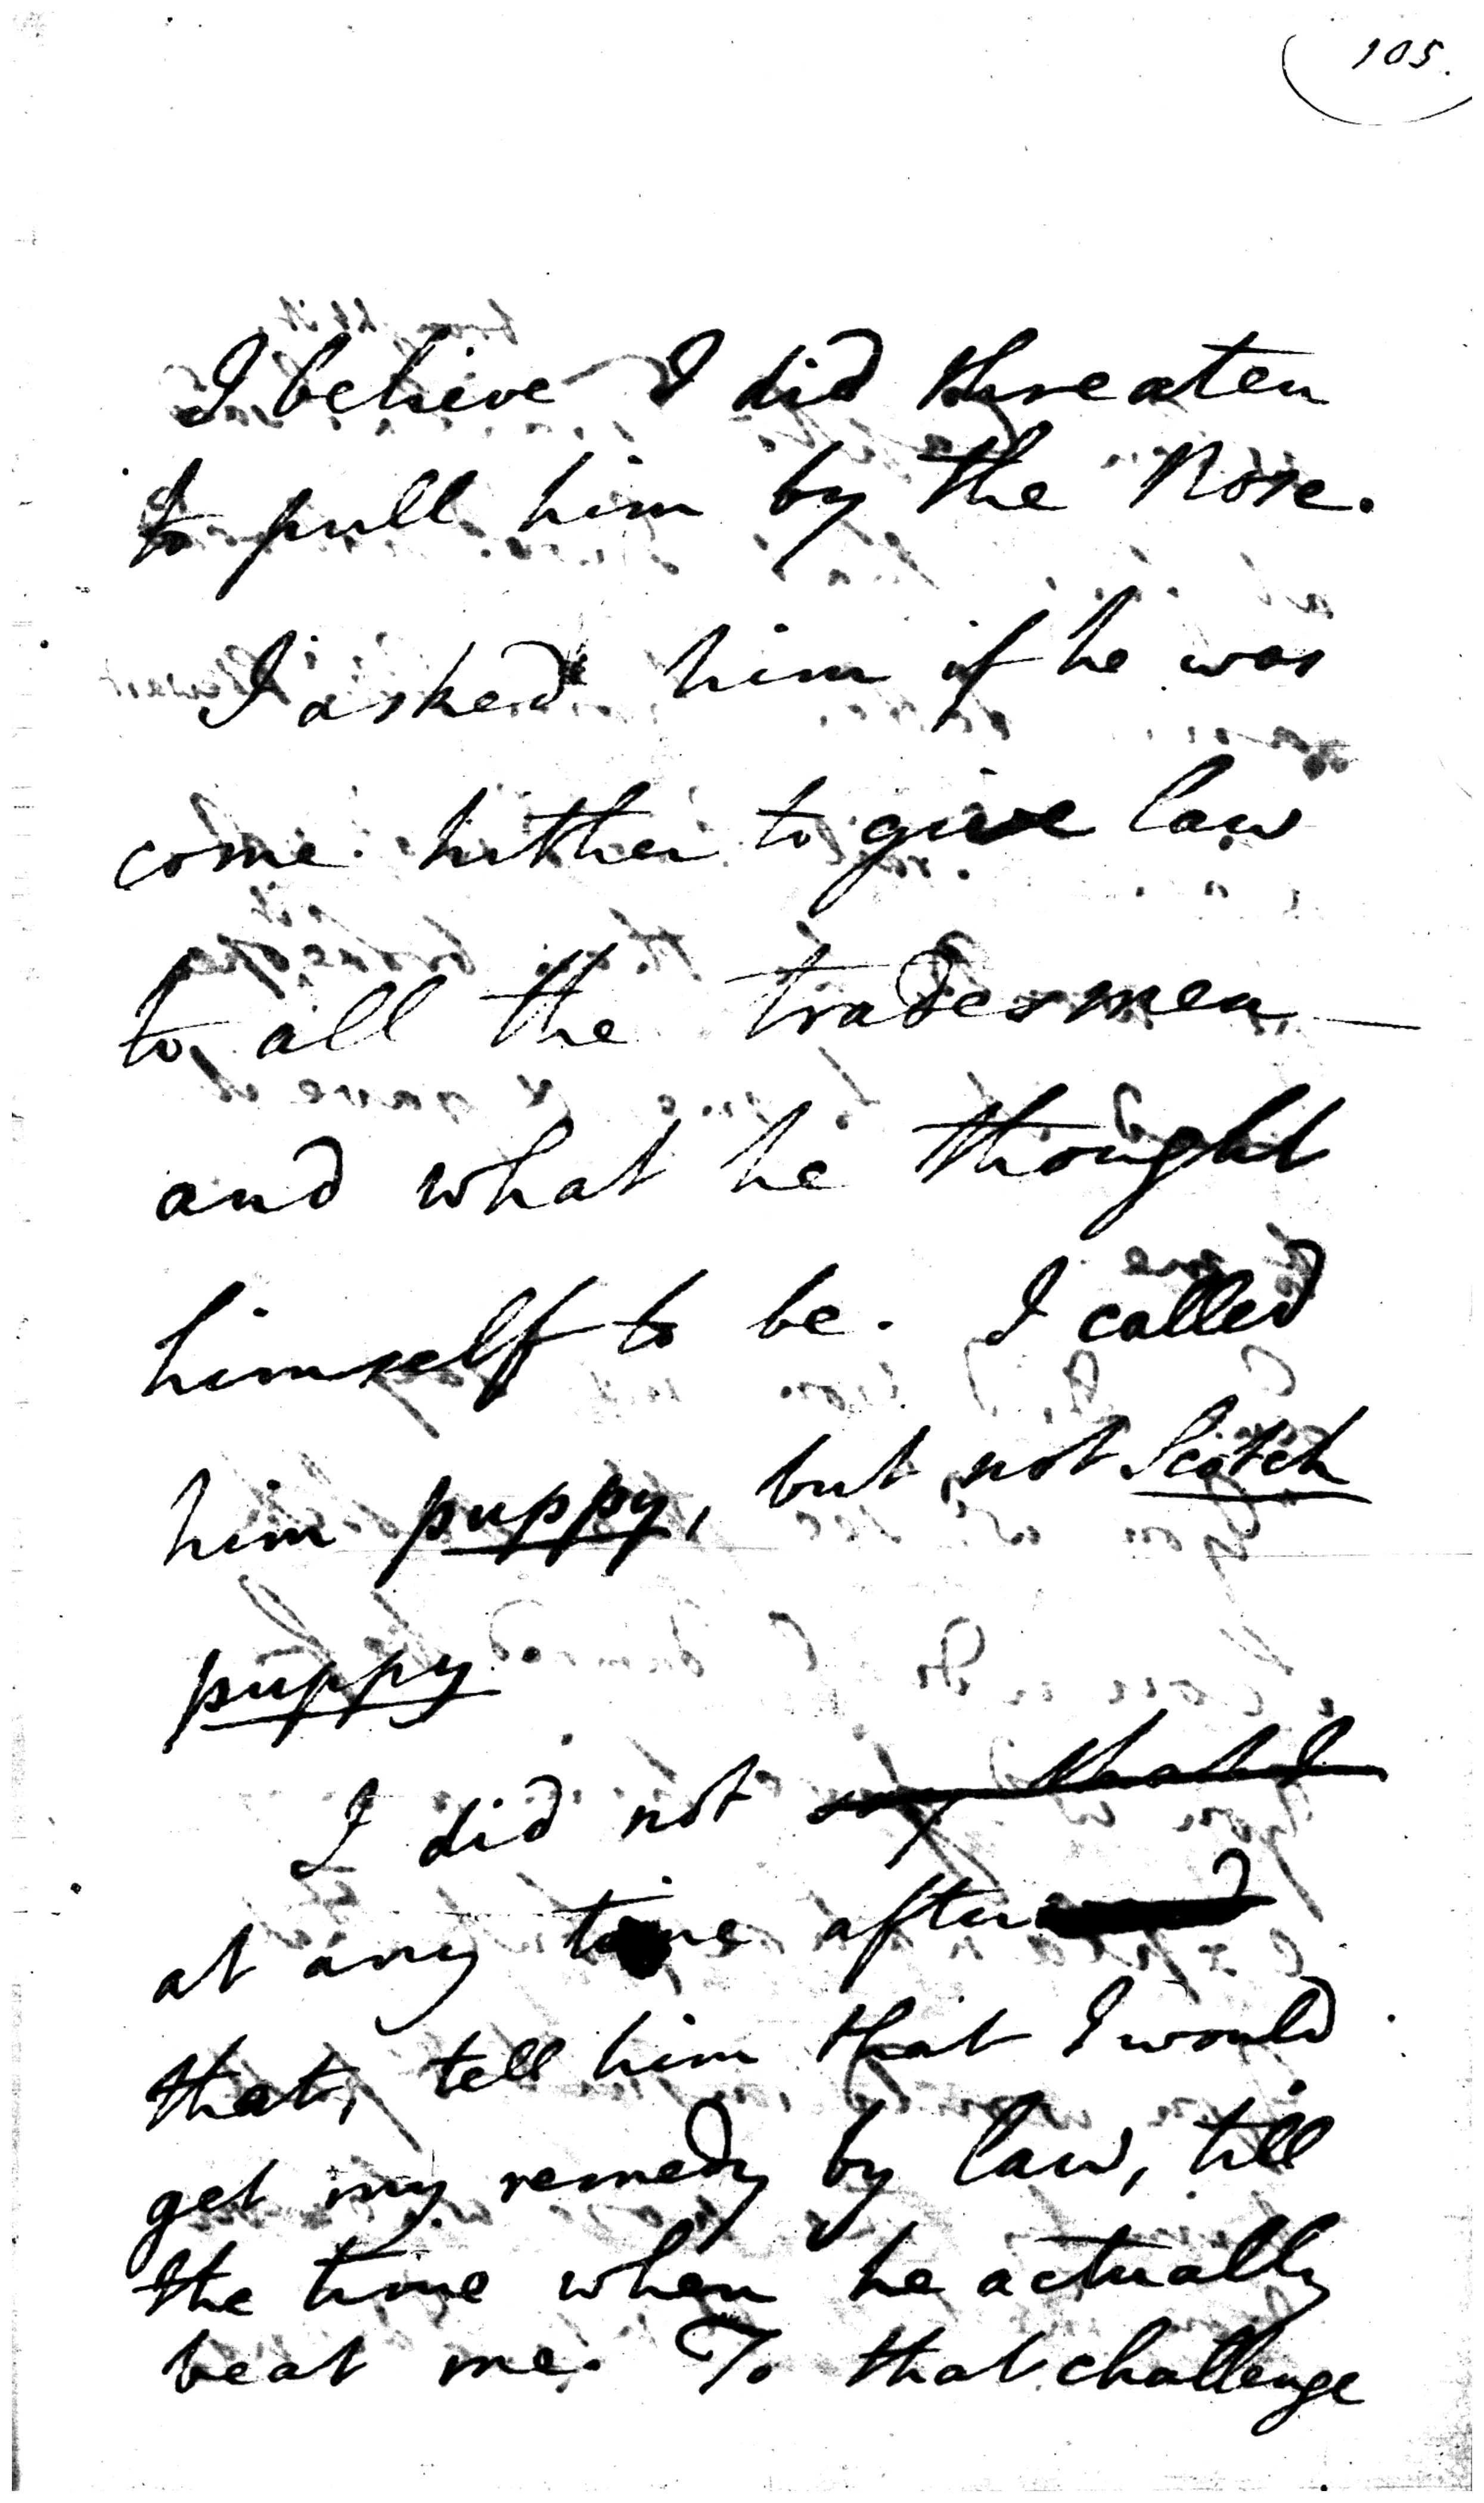 105.
I believe I did threaten
to pull him by the Nose.
I asked him if he was
come hither to give law
to all the tradesmen —
and what he thought
himself to be. I called
him puppy, but not Scotch
puppy.
I did not say that I
at any time after
that, tell him that I would
get my remedy by law, till
the time when he actually
beat me. To that challenge